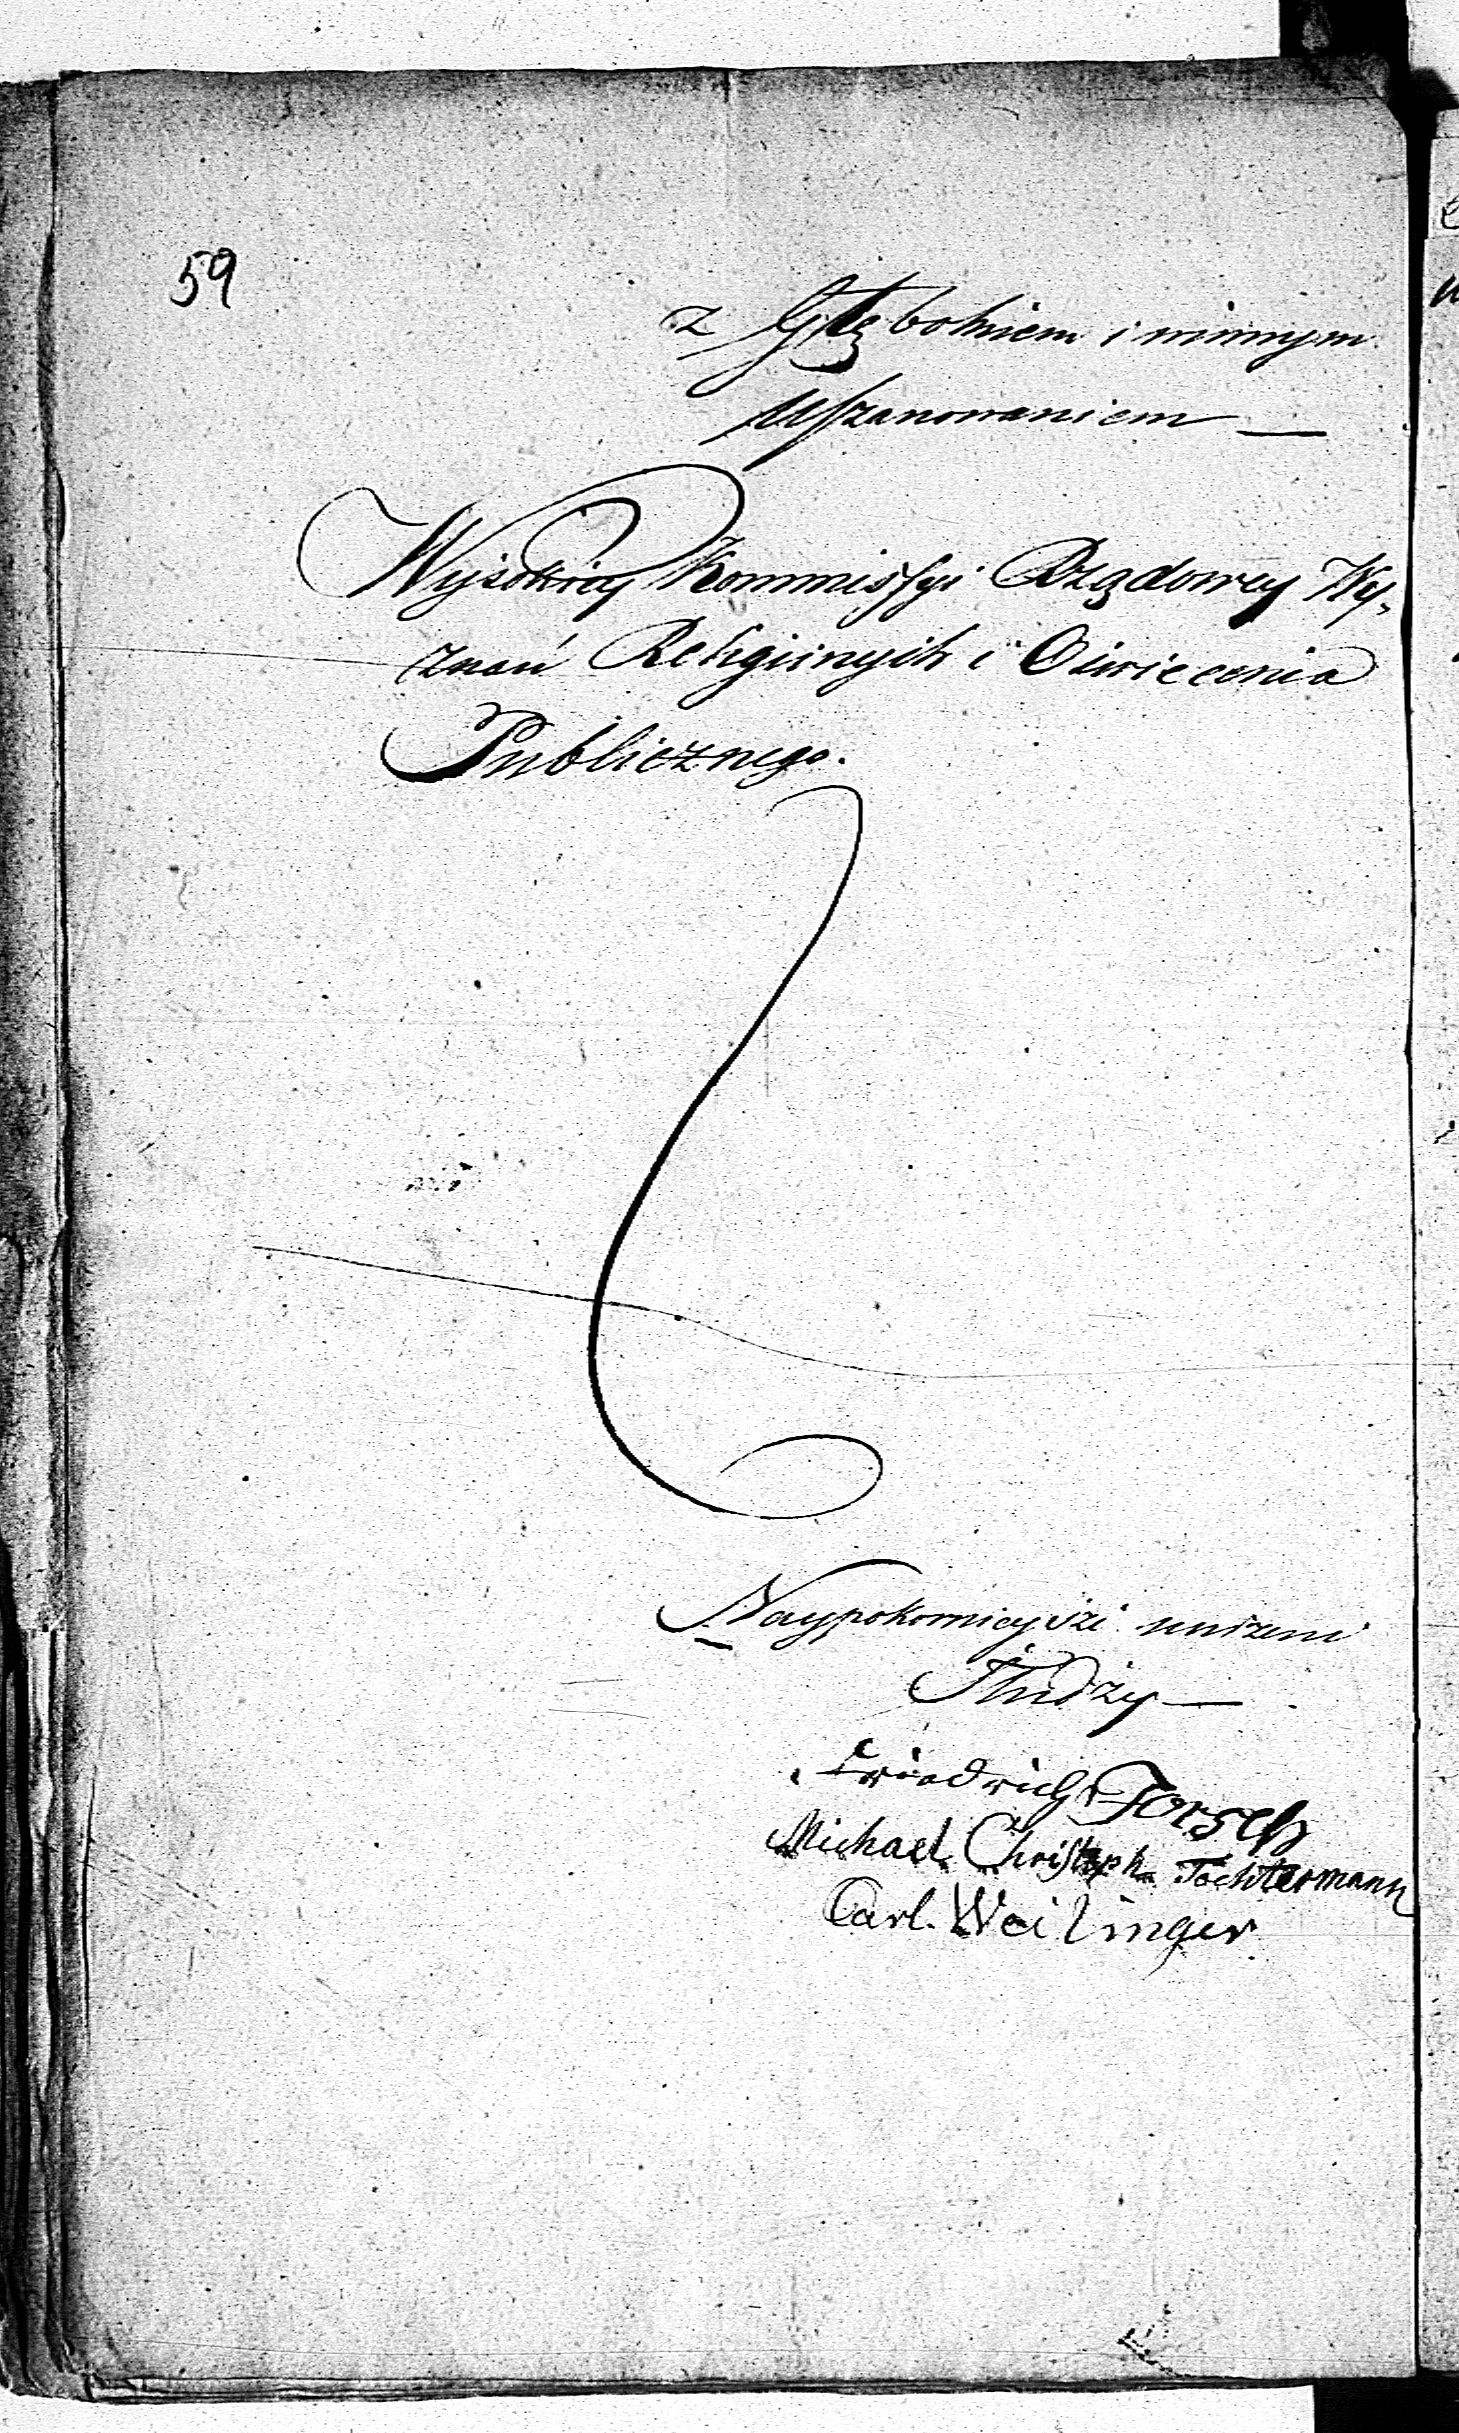 59
z Głębokiem i winnym
Uszanowaniem —
Wysokiey Kommissyi Rządowey Wy-
znań Religiinych i Oświecenia
Publicznego.
Naypokornieysi uniżeni
Słudzy —
Friedrich Forsch
Michael Christoph Tochtermann
Carl. Weilinger